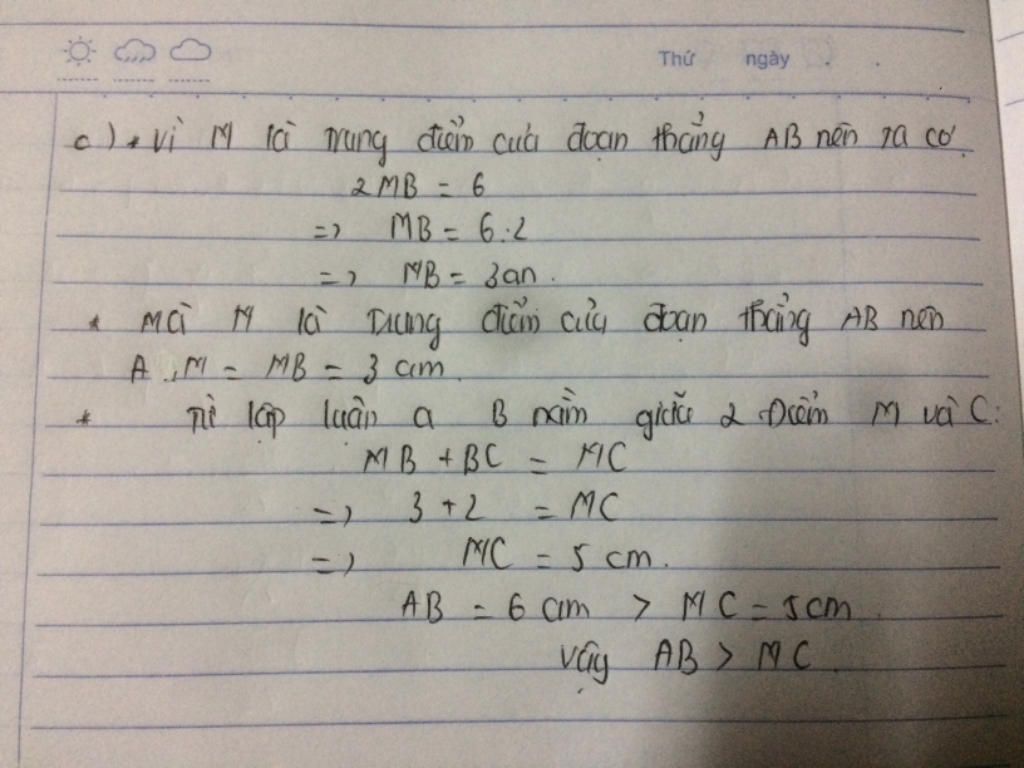 Thứ ngày
c) * Vì M là trung điểm của đoạn thẳng AB nên ta có
2MB = 6
=> MB = 6:2
=> MB = 3cm.
* Mà M là trung điểm của đoạn thẳng AB nên
AM = MB = 3 cm.
* Từ lập luận a B nằm giữa 2 điểm M và C:
MB + BC = MC
=> 3 + 2 = MC
=> MC = 5 cm.
AB = 6 cm > MC = 5cm.
Vậy AB > MC.